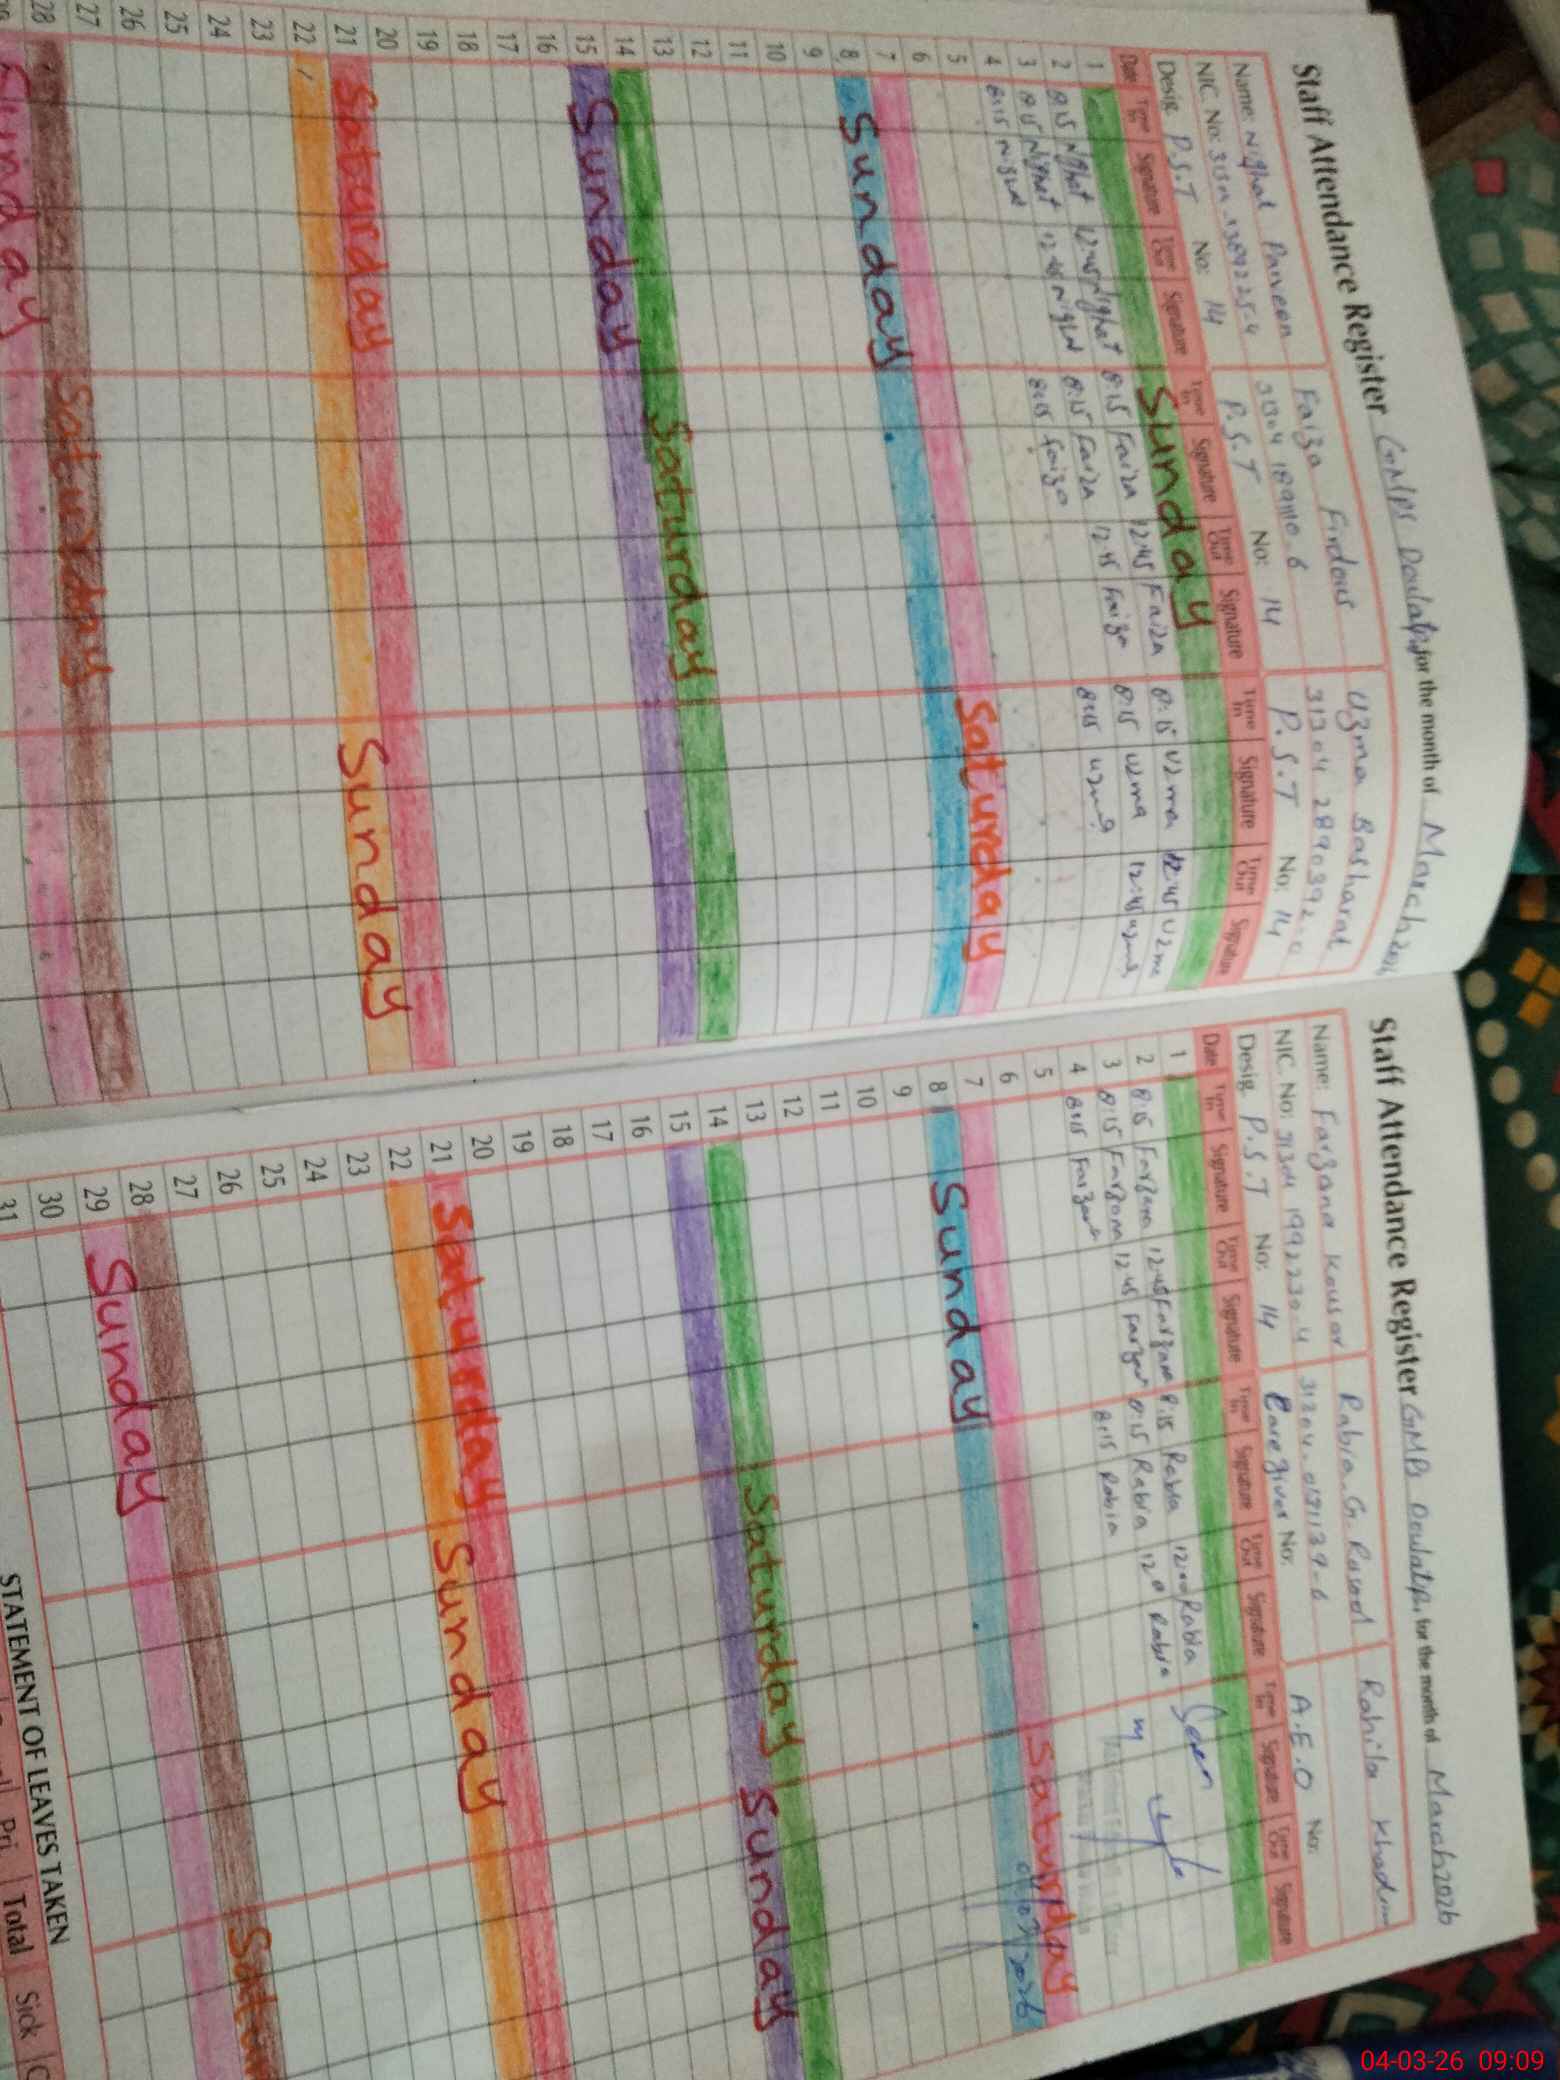 Staff Attendance Register GMPS Doulatpur for the month of March 2026
Name: Nighat Parveen Faiza Firdous Uzma Basharat
NIC. No: 31304
Desig. P.S.T No: 14 P.S.T No: 14 P.S.T No: 14
Date Time In Signature Time Out Signature Time In Signature Time Out Signature Time In Signature Time Out Signature
1 Sunday
2 8:15 Nighat 12:45 Nighat 8:15 Faiza 12:45 Faiza 8:15 Uzma 12:45 Uzma
3 8:15 Nighat 12:45 Nighat 8:15 Faiza 12:45 Faiza 8:15 Uzma 12:45 Uzma
4 8:15 Nighat 8:15 Faiza 8:15 Uzma
5
6
7 Saturday
8 Sunday
9
10
11
12
13
14 Saturday
15 Sunday
16
17
18
19
20
21 Saturday
22 Sunday
23
24
25
26
27
28 Saturday
Sunday
Staff Attendance Register GMPS Doulatpur for the month of March 2026
Name: Farzana Kousar Rabia G. Rasool Rahila Khadim
NIC. No: 31304 1992230-4
Desig. P.S.T No: 14 Caregiver No: A.E.O No:
Date Time In Signature Time Out Signature Time In Signature Time Out Signature Time In Signature Time Out Signature
1
2 8:15 Farzana 12:45 Farzana 8:15 Rabia 12:00 Rabia
3 8:15 Farzana 12:45 Farzana 8:15 Rabia Rabia
4 8:15 Farzana 8:15 Rabia
5
6
7 Saturday
8 Sunday
9
10
11
12
13
14 Saturday
15 Sunday
16
17
18
19
20
21 Saturday
22 Sunday
23
24
25
26
27
28 Satur
29 Sunday
30
31
STATEMENT OF LEAVES TAKEN
Pri. Total Sick
04-03-26 09:09